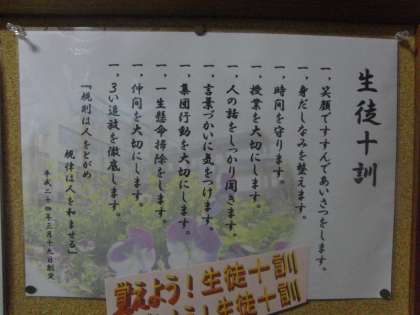 生徒十訓
一、笑顔ですすんであいさつをします。
一、身だしなみを整えます。
一、時間を守ります。
一、授業を大切にします。
一、人の話をしっかり聞きます。
一、言葉づかいに気をつけます。
一、集団行動を大切にします。
一、一生懸命掃除をします。
一、仲間を大切にします。
一、3い追放を徹底します。
「規則は人をとがめ
規律は人を和ませる」
平成二十四年三月十九日制定
覚えよう!生徒十訓